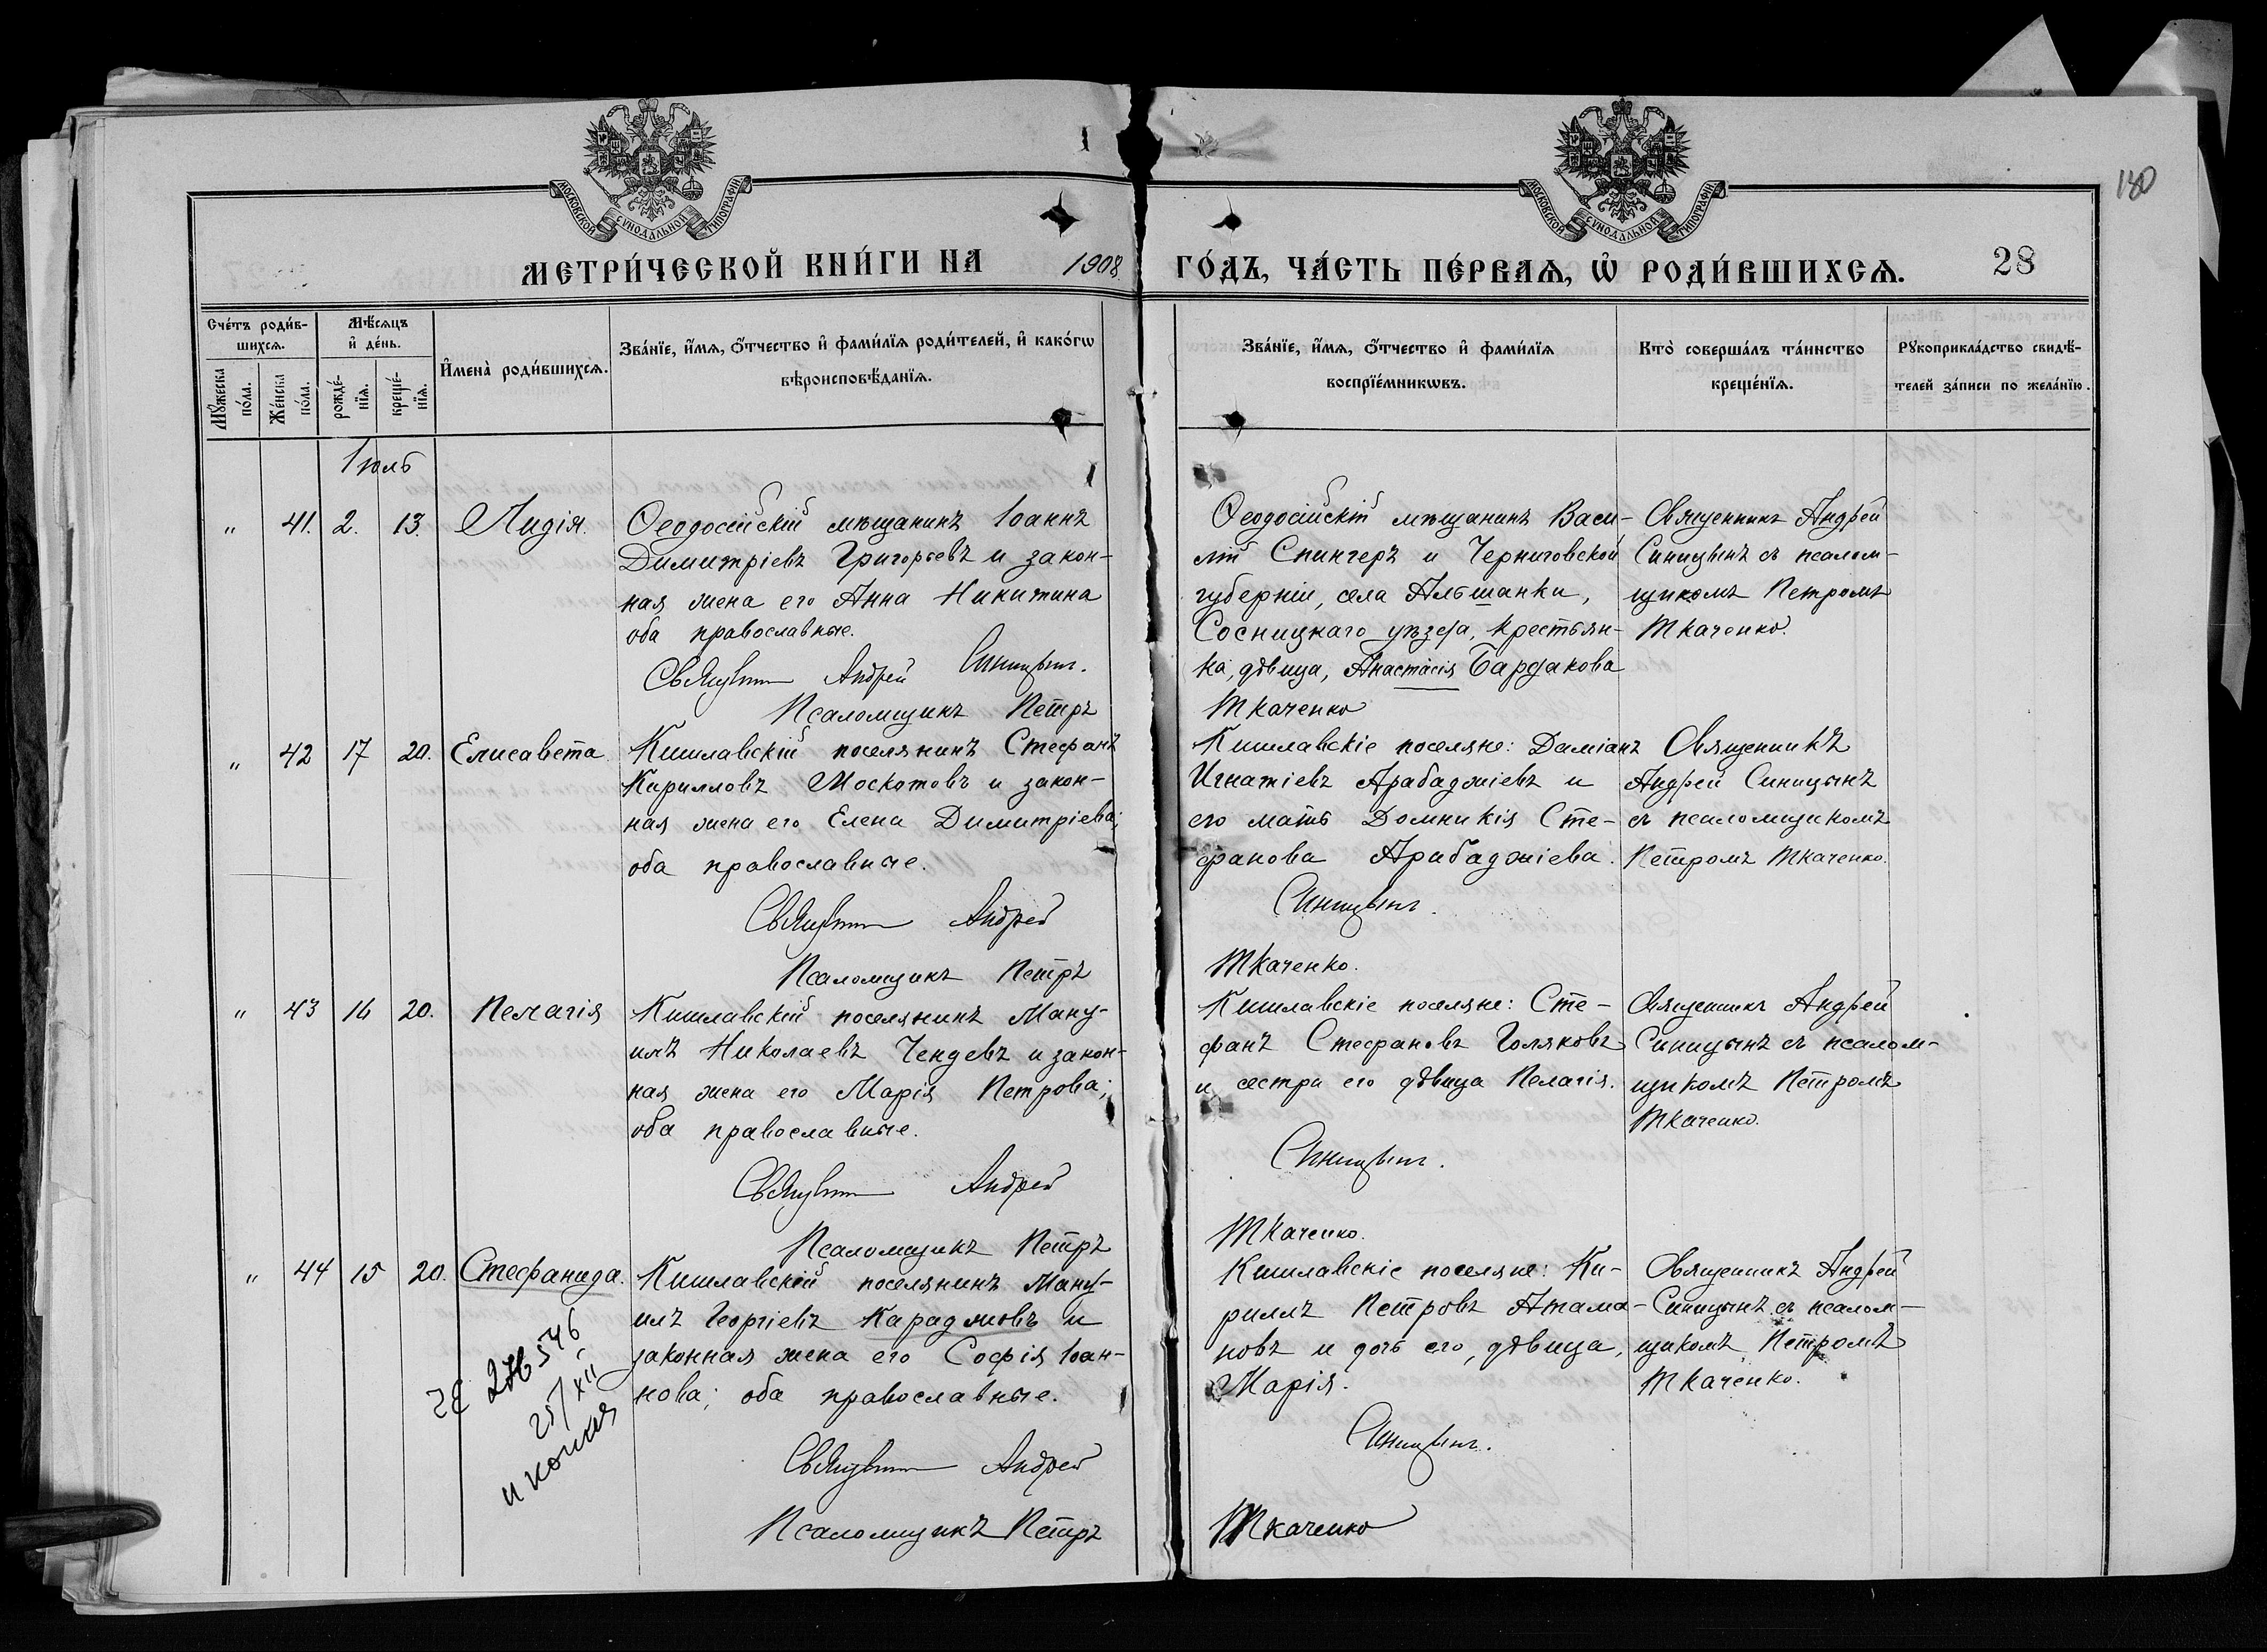 МОСКОВСКОЙ СѴНОДАЛЬНОЙ ТИПОГРАФІИ
МОСКОВСКОЙ СѴНОДАЛЬНОЙ ТИПОГРАФІИ
180
МЕТРИ́ЧЕСКОЙ КНИ́ГИ НА 1908 ГО́ДЪ, ЧА́СТЬ ПЕ́РВАѦ, Ѡ҆ РОДИ́ВШИХСѦ. 28
Сче́тъ роди́в-
шихсѧ.
Мѣ́сѧцъ
и҆ де́нь.
Мꙋ́жеска
по́ла.
Же́нска
по́ла.
рожде́-
нїѧ.
креще́-
нїѧ.
И҆мена̀ роди́вшихсѧ.
Зва́нїе, и҆́мѧ, ѻ҆́тчество и҆ фами́лїѧ роди́телей, и҆ како́гѡ
вѣроисповѣ́данїѧ.
Зва́нїе, и҆́мѧ, ѻ҆́тчество и҆ фами́лїѧ
воспрїе́мникѡвъ.
Кто̀ соверша́лъ та́инство
креще́нїѧ.
Рꙋкоприкла́дство свидѣ́-
телей за́писи по жела́нїю.
Іюль
" 41. 2. 13. Лидія.
Ѳеодосійскій мѣщанинъ Іоаннъ
Димитріевъ Григорьевъ и закон-
ная жена его Анна Никитина
оба православные.
Священникъ Андрей Синицынъ.
Псаломщикъ Петръ
Ѳеодосійскій мѣщанинъ Васи-
лій Спингеръ и Черниговской
губерніи, села Альшанки,
Сосницкаго уѣзда, крестьян-
ка, дѣвица, Анастасія Бардакова
Ткаченко
Священникъ Андрей
Синицынъ съ псалом-
щикомъ Петромъ
Ткаченко.
" 42 17 20. Елисавета.
Кишлавскій поселянинъ Стефанъ
Кирилловъ Москотовъ и закон-
ная жена его Елена Димитріева;
оба православные.
Священникъ Андрей
Псаломщикъ Петръ
Кишлавскіе поселяне: Даміанъ
Игнатіевъ Арабаджіевъ и
его мать Домникія Сте-
фанова Арабаджіева.
Синицынъ.
Ткаченко.
Священникъ
Андрей Синицынъ
съ псаломщикомъ
Петромъ Ткаченко.
" 43 16 20. Пелагія
Кишлавскій поселянинъ Ману-
илъ Николаевъ Чендевъ и закон-
ная жена его Марія Петрова;
оба православные.
Священникъ Андрей
Псаломщикъ Петръ
Кишлавскіе поселяне: Сте-
фанъ Стефановъ Голяковъ
и сестра его дѣвица Пелагія.
Синицынъ.
Ткаченко.
Священникъ Андрей
Синицынъ съ псалом-
щикомъ Петромъ
Ткаченко.
" 44 15 20. Стефанида.
Кишлавскій поселянинъ Ману-
илъ Георгіевъ Караджовъ и
законная жена его Софія Іоан-
нова; оба православные.
Священникъ Андрей
Псаломщикъ Петръ
Кишлавскіе поселяне: Ки-
риллъ Петровъ Атама-
новъ и дочь его, дѣвица,
Марія.
Синицынъ.
Ткаченко
Священникъ Андрей
Синицынъ съ псалом-
щикомъ Петромъ
Ткаченко.
25/XII
и копия